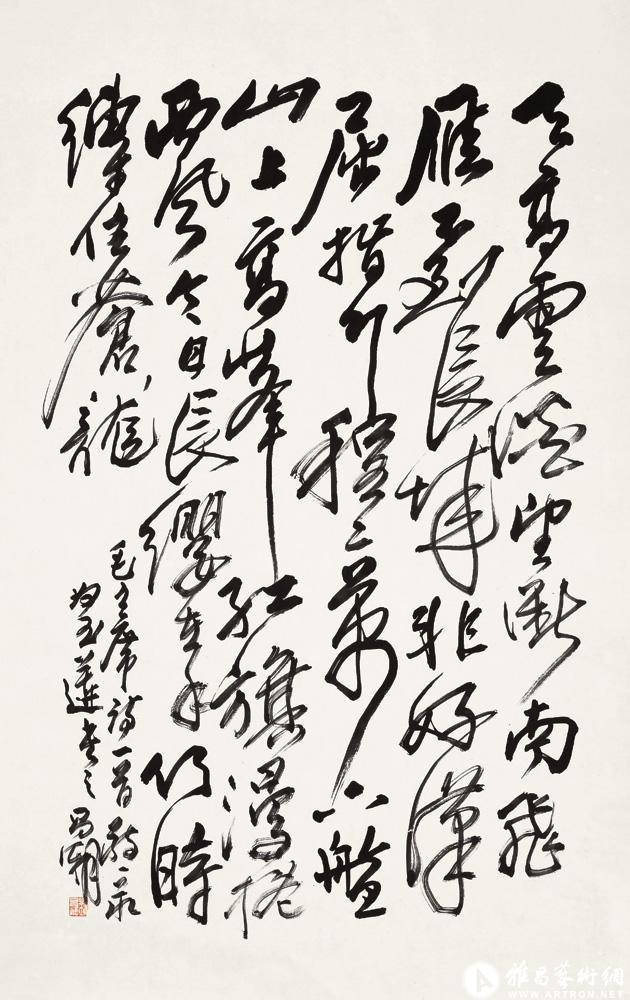 天高雲澹望斷南飛
雁不到長城非好漢
屈指行程二萬六盤
山上高峰紅旗漫捲
西風今日長纓在手何時
縛住蒼龍
毛主席詩一首敬录
为玉蓮書之
雅昌藝術網
WWW.ARTRON.NET